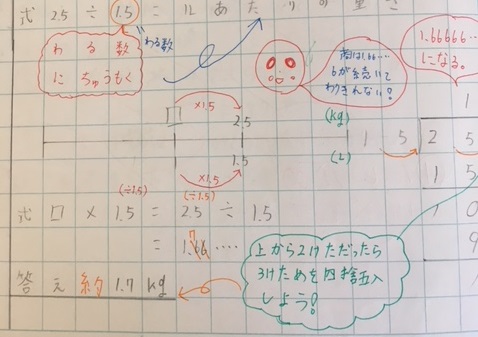 式 2.5 ÷ 1.5 = 1Lあたりの重さ
わる数
にちゅうもく
わる数
商は1.66…
6が続いて
わりきれない!
1.66666…
になる。
×1.5
□ 2.5 (kg)
1.5 (L)
×1.5
(÷1.5) (÷1.5)
1
1 5 2 5
1 5
1 0
9
式 □ × 1.5 = 2.5 ÷ 1.5
= 1.66…‥
7
答え 約 1.7 kg
上から2けただったら
3けためを四捨五入
しよう!